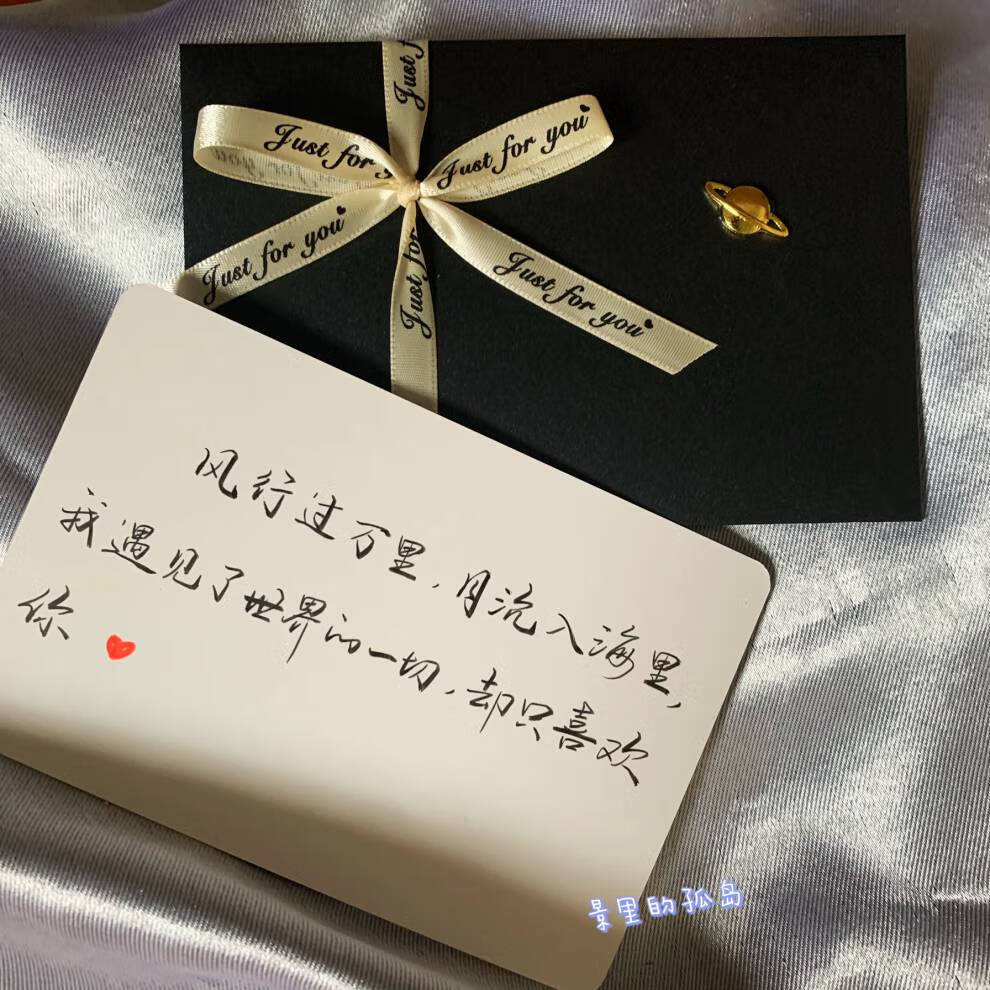 Just
Just for
Just for you
Just for you
Just for
Just for you
风行过万里,月流入海里,
我遇见了世界的一切,却只喜欢
你
景里的孤岛